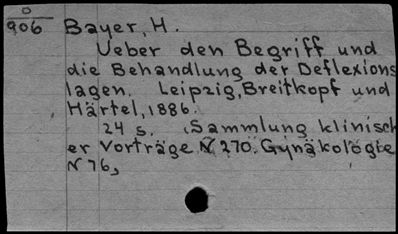 O
906 Bayer, H.
Ueber den Begriff und
die Behandlung der Deflexions
lagen. Leipzig, Breitkopf und
Härtel, 1886.
24 s. (Sammlung klinisch
er Vorträge N 270. Gynäkologie
N 76,